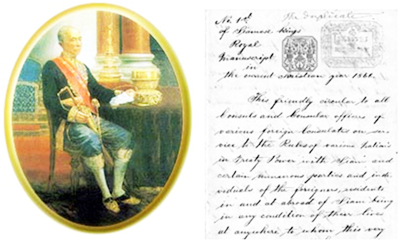 No. 1st
of Siamese Kings
Royal
manuscript
in
the current christian year 186
This friendly circular to all
Consuls and Consular offices of
various foreign Consulates on ser-
vice to the Rules of various Nation's
in Treaty Power with Siam and
certain numerous parties and indi-
viduals of the foreigners, residents
in and at abroad of Siam being
in any condition of their lives
at anywhere to whom this very